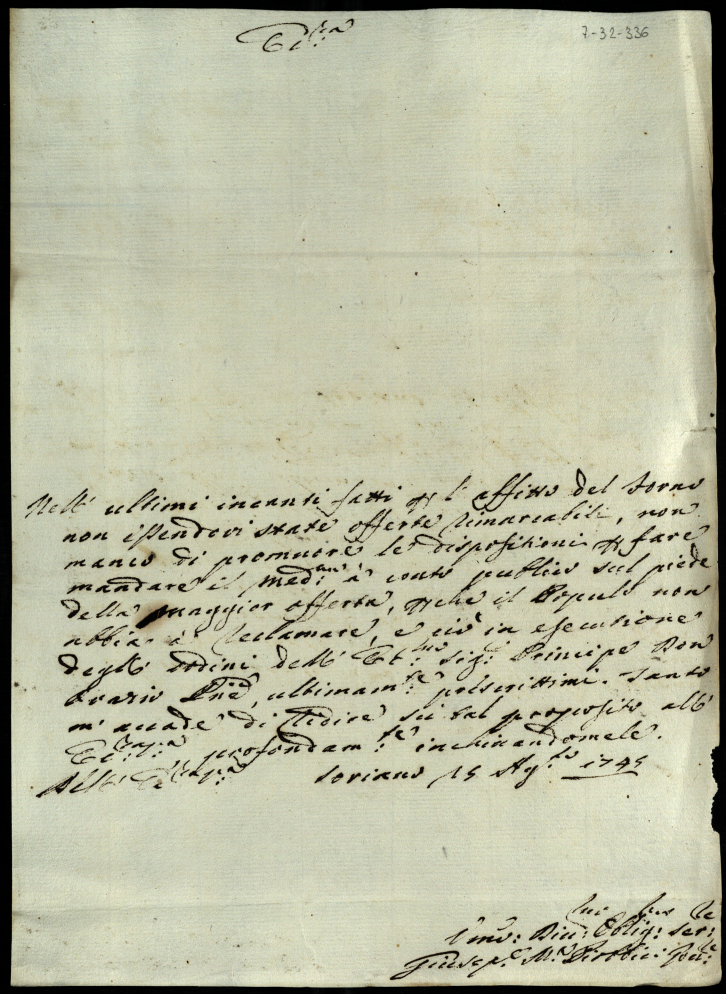 7-32-336
Ecc:za
Nell' ultimi incanti fatti per l' affitto del Forno
non essendovi state offerte rimarcabili, non
manco di promuovere le disposizioni per fare
mandare il med:mo a' conto publico sul piede
della maggior offerta, perche il Popolo non
abbia a' reclamare, e ciò in esecutione
degli ordini dell' Ecc:mo Sig:r Principe Don
Orazio Pne, ultimam:te prescrittimi. Tanto
m' accade di ridire su tal proposito all'
Ecc:za V:ra profondam:te inchinandomele.
Dell' Ecc:za V:ra Soriano 15 Ag:to 1745
Umo: Div: Oblig: ser:
Giusep:e M:a